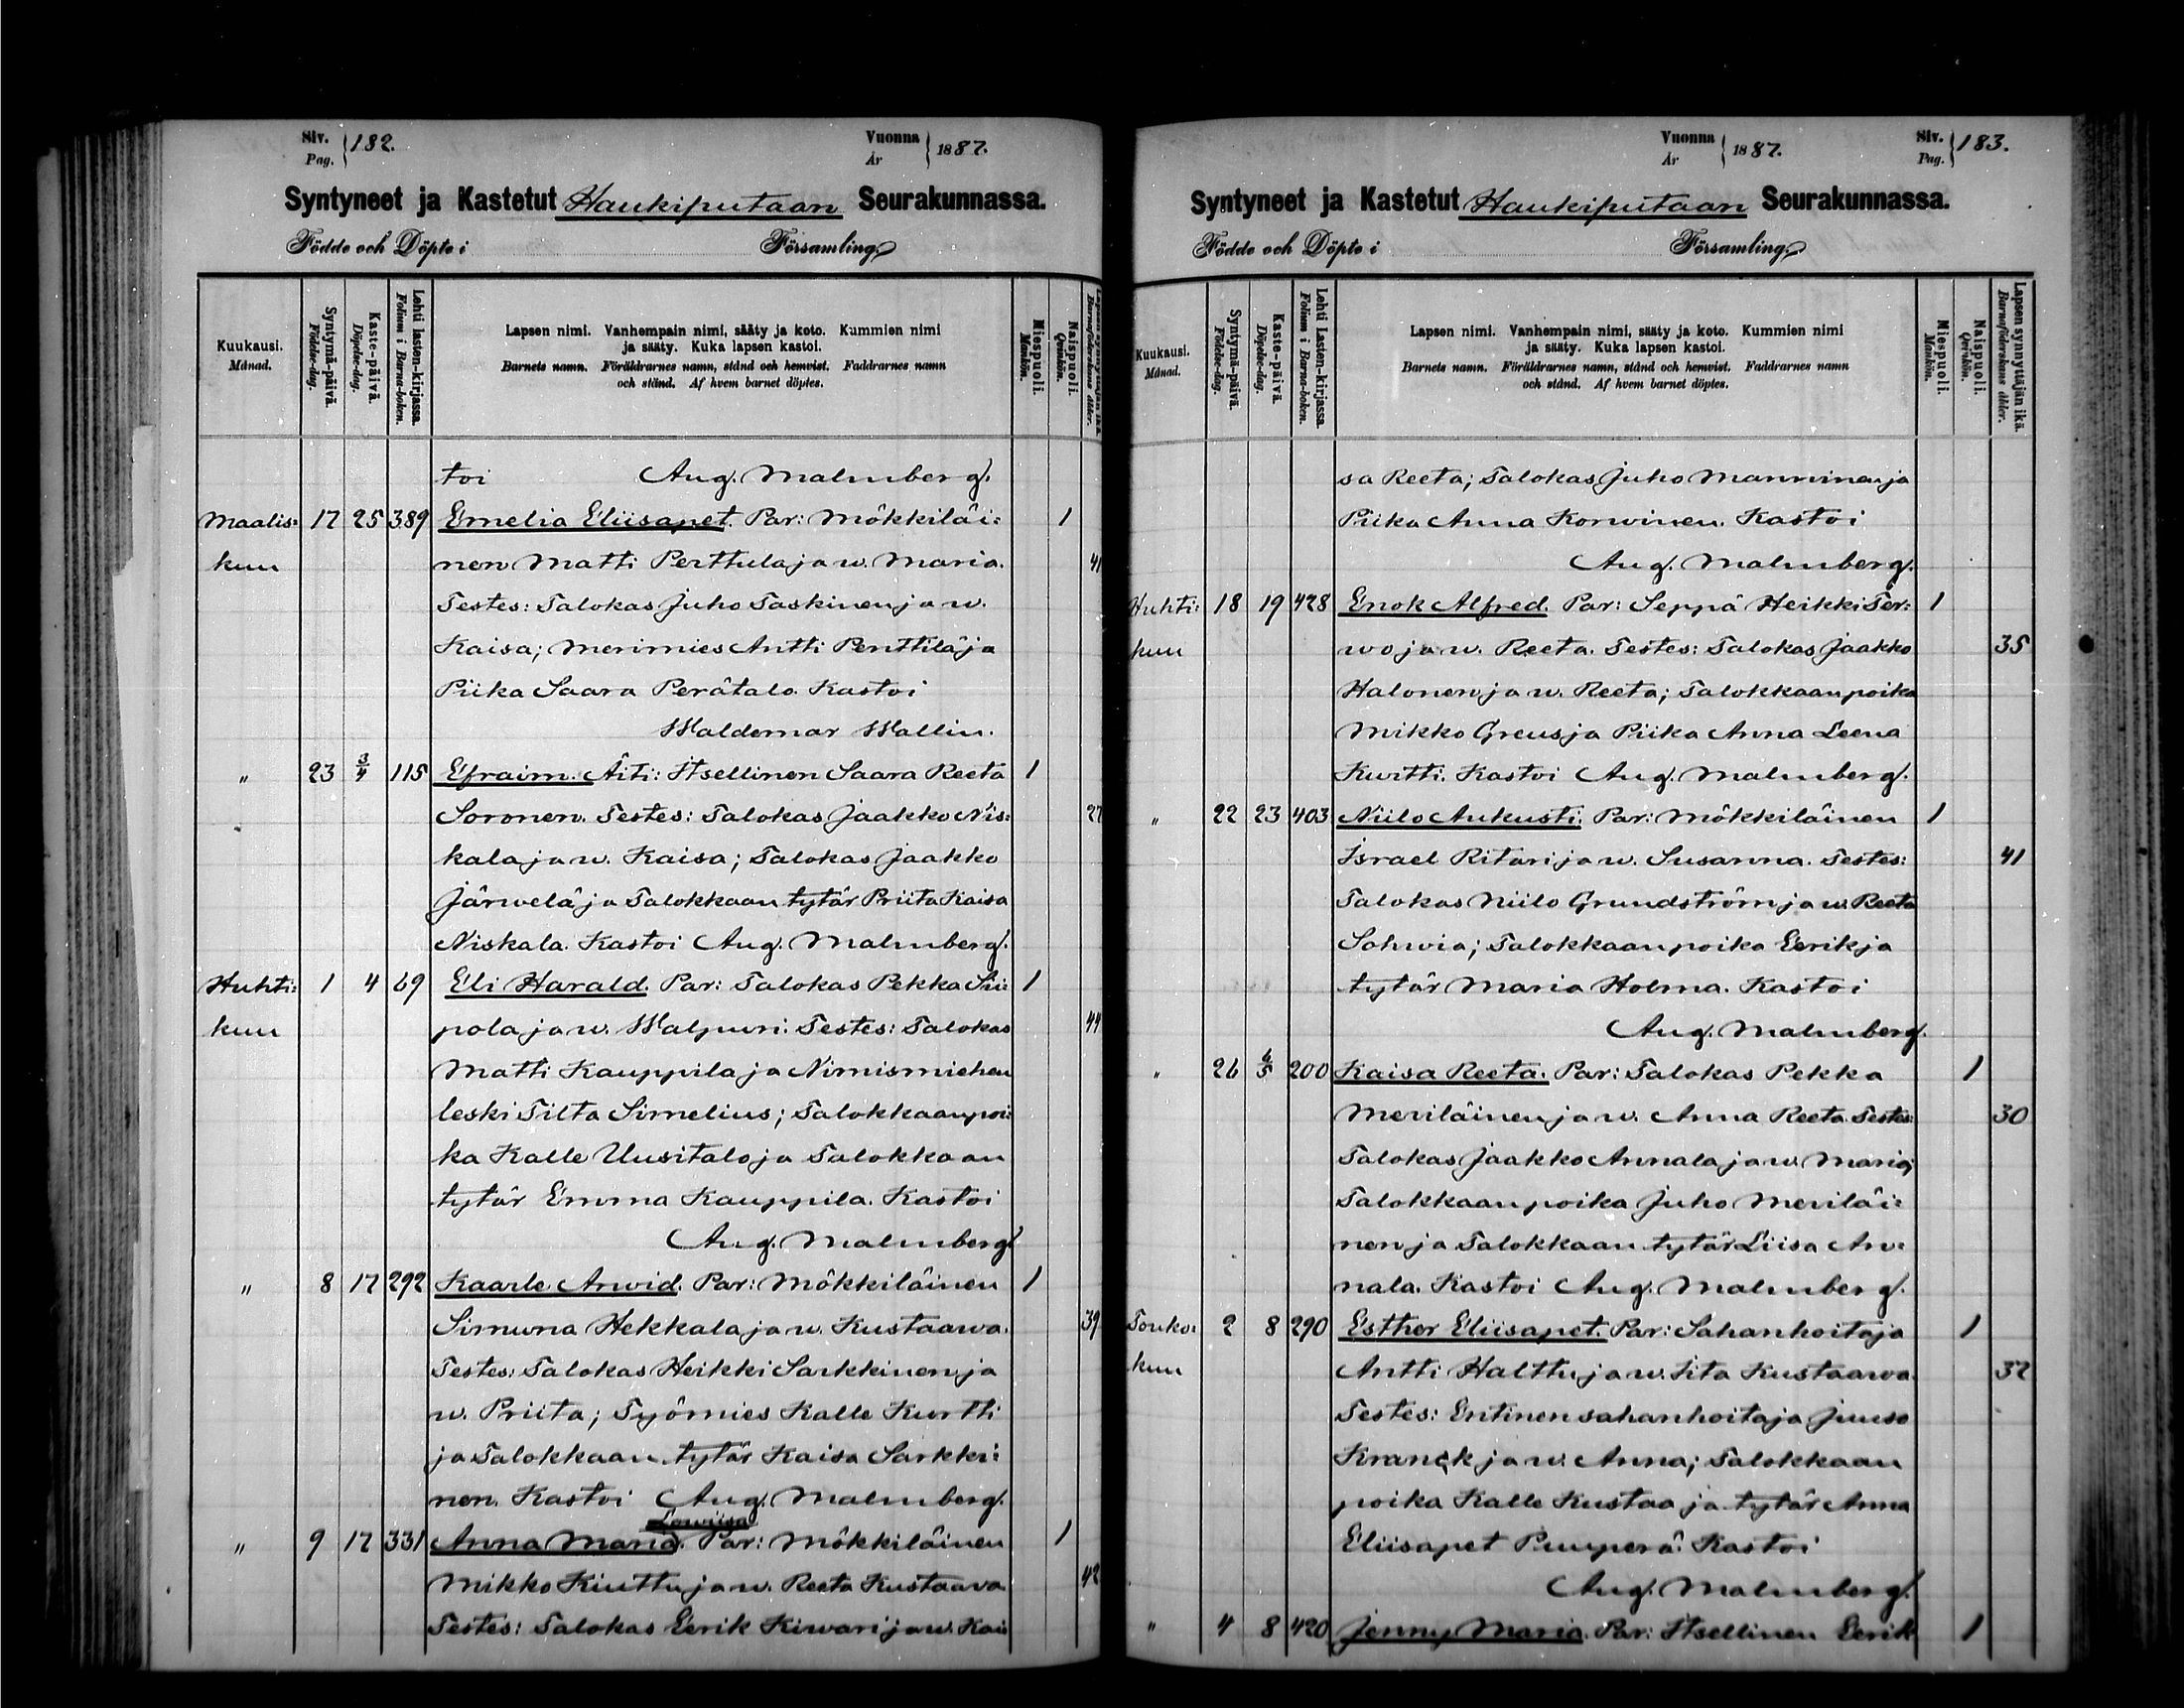 Siv. Pag. 182. Vuonna År 1887.
Syntyneet ja Kastetut Haukiputaan Seurakunnassa.
Födde och Döpte i Församling.
Kuukausi. Månad.
Syntymä-päivä. Födelse-dag.
Kaste-päivä. Döpelse-dag.
Lehti lasten-kirjassa. Folium i Barna-boken.
Lapsen nimi. Vanhempain nimi, sääty ja koto. Kummien nimi
ja sääty. Kuka lapsen kastoi.
Barnets namn. Föräldrarnes namn, stånd och hemvist. Faddrarnes namn
och stånd. Af hvem barnet döptes.
Miespuoli. Mankön.
Naispuoli. Qvinkön.
Lapsen synnyttäjän ikä. Barnaföderskans ålder.
toi Aug. Malmberg.
Maalis: 17 25 389 Emelia Eliisapet. Par: Mökkiläi: 1
kuu nen Matti Perttula ja w. Maria. 41
Testes: Talokas Juho Taskinen ja w.
Kaisa; Merimies Antti Penttilä ja
Piika Saara Perätalo. Kastoi
Waldemar Wallin.
" 23 3/4 115 Efraim. Äiti: Itsellinen Saara Reeta 1
Soronen. Testes: Talokas Jaakko Nis: 27
kala ja w. Kaisa; Talokas Jaakko
Järwelä ja Talokkaan tytär Priita Kaisa
Niskala. Kastoi Aug. Malmberg.
Huhti: 1 4 69 Eli Harald. Par: Talokas Pekka Sii: 1
kuu pola ja w. Walpuri. Testes: Talokas 44
Matti Kauppila ja Nimismiehen
leski Tilta Simelius; Talokkaan poi:
ka Kalle Uusitalo ja Talokkaan
tytär Emma Kauppila. Kastoi
Aug. Malmberg.
" 8 17 292 Kaarle Arwid. Par: Mökkiläinen 1
Simuna Hekkala ja w. Kustaawa. 39
Testes: Talokas Heikki Sarkkinen ja
w. Priita; Työmies Kalle Kurtti
ja Talokkaan tytär Kaisa Sarkki:
nen. Kastoi Aug. Malmberg.
Lowiisa
" 9 17 331 Anna Maria. Par: Mökkiläinen 1
Mikko Kiuttu ja w. Reeta Kustaava 42
Testes: Talokas Eerik Kiwari ja w. Kai:
Vuonna År 1887. Siv. Pag. 183.
Syntyneet ja Kastetut Haukiputaan Seurakunnassa.
Födde och Döpte i Församling.
Kuukausi. Månad.
Syntymä-päivä. Födelse-dag.
Kaste-päivä. Döpelse-dag.
Lehti lasten-kirjassa. Folium i Barna-boken.
Lapsen nimi. Vanhempain nimi, sääty ja koto. Kummien nimi
ja sääty. Kuka lapsen kastoi.
Barnets namn. Föräldrarnes namn, stånd och hemvist. Faddrarnes namn
och stånd. Af hvem barnet döptes.
Miespuoli. Mankön.
Naispuoli. Qvinkön.
Lapsen synnyttäjän ikä. Barnaföderskans ålder.
sa Reeta; Talokas Juho Manninen ja
Piika Anna Korwinen. Kastoi
Aug. Malmberg.
Huhti: 18 19 428 Enok Alfred. Par: Seppä Heikki Ter: 1
kuu wo ja w. Reeta. Testes: Talokas Jaakko 35
Halonen ja w. Reeta; Talokkaan poika
Mikko Greus ja Piika Anna Leena
Kurtti. Kastoi Aug. Malmberg.
" 22 23 403 Niilo Aukusti. Par: Mökkiläinen 1
Israel Ritari ja w. Susanna. Testes: 41
Talokas Niilo Grundström ja w. Reeta
Sohwia; Talokkaan poika Eerik ja
tytär Maria Holma. Kastoi
Aug. Malmberg.
" 26 6/5 200 Kaisa Reeta. Par: Talokas Pekka 1
Meriläinen ja w. Anna Reeta. Testes: 30
Talokas Jaakko Annala ja w. Maria;
Talokkaan poika Juho Meriläi:
nen ja Talokkaan tytär Liisa An:
nala. Kastoi Aug. Malmberg.
Touko: 2 8 290 Esther Eliisapet. Par: Sahanhoitaja 1
kuu Antti Halttu ja w. Iita Kustaawa. 32
Testes: Entinen sahanhoitaja Juuso
Kranck ja w. Anna; Talokkaan
poika Kalle Kustaa ja tytär Anna
Eliisapet Puuperä. Kastoi
Aug. Malmberg.
" 4 8 420 Jenny Maria. Par: Itsellinen Eerik 1